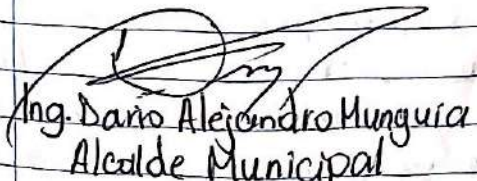 Ing. Dario Alejandro Munguia
Alcalde Municipal